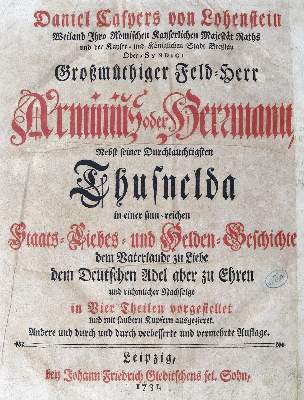 Daniel Caspers von Lohenstein
Weiland Ihro Römischen Kayserlichen Majestät Raths
und der Kayser- und Königlichen Stadt Breßlau
Ober-Syndici
Großmüthiger Feld-Herr
Arminius oder Herrmann,
Nebst seiner Durchlauchtigsten
Thusnelda
in einer sinn-reichen
Staats-Liebes- und Helden-Geschichte
dem Vaterlande zu Liebe
dem Deutschen Adel aber zu Ehren
und rühmlicher Nachfolge
in Vier Theilen vorgestellet
und mit saubern Kupfern ausgezieret.
Andere und durch und durch verbesserte und vermehrte Auflage.
Leipzig,
bey Johann Friedrich Gleditschens sel. Sohn,
1731.